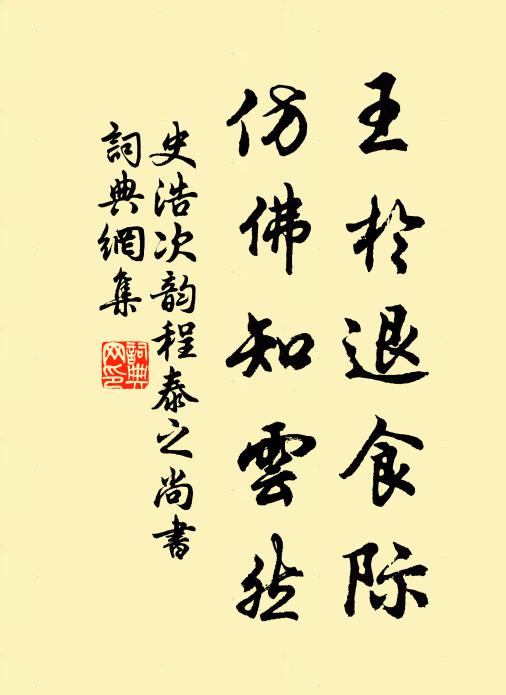 王於退食际
仿佛知雲然
史浩次韵程泰之尚書
詞典網集
詞典網印